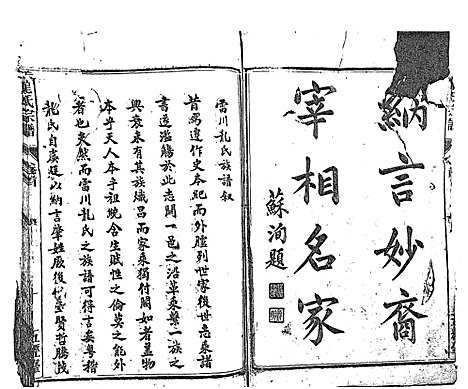 納言妙裔
宰相名家
蘇洵題
雷川龍氏族譜叙
昔馬遷作史本紀而外臚列世家後世志乘譜
書遂濫觴於此志闔一邑之沿革乘擧一族之
興衰未有其族熾昌而家乘獨付闕如者蓋物
本乎天人本乎祖觥含生賦性之倫莫之能外
者也夫然而雷川龍氏之族譜可得言矣粤稽
龍氏自虞廷以納言肇姓厥後代荃賢哲騰茂
氏宗譜